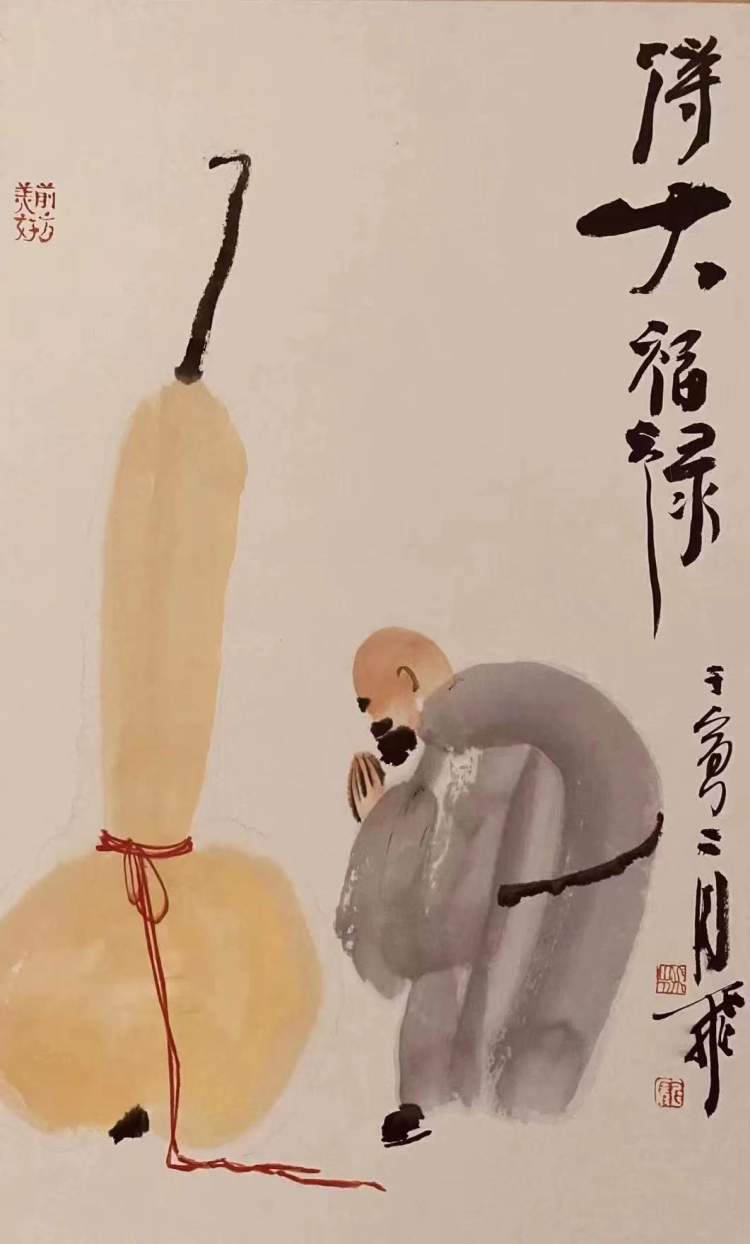 得大福禄
壬寅二月
前方
美好